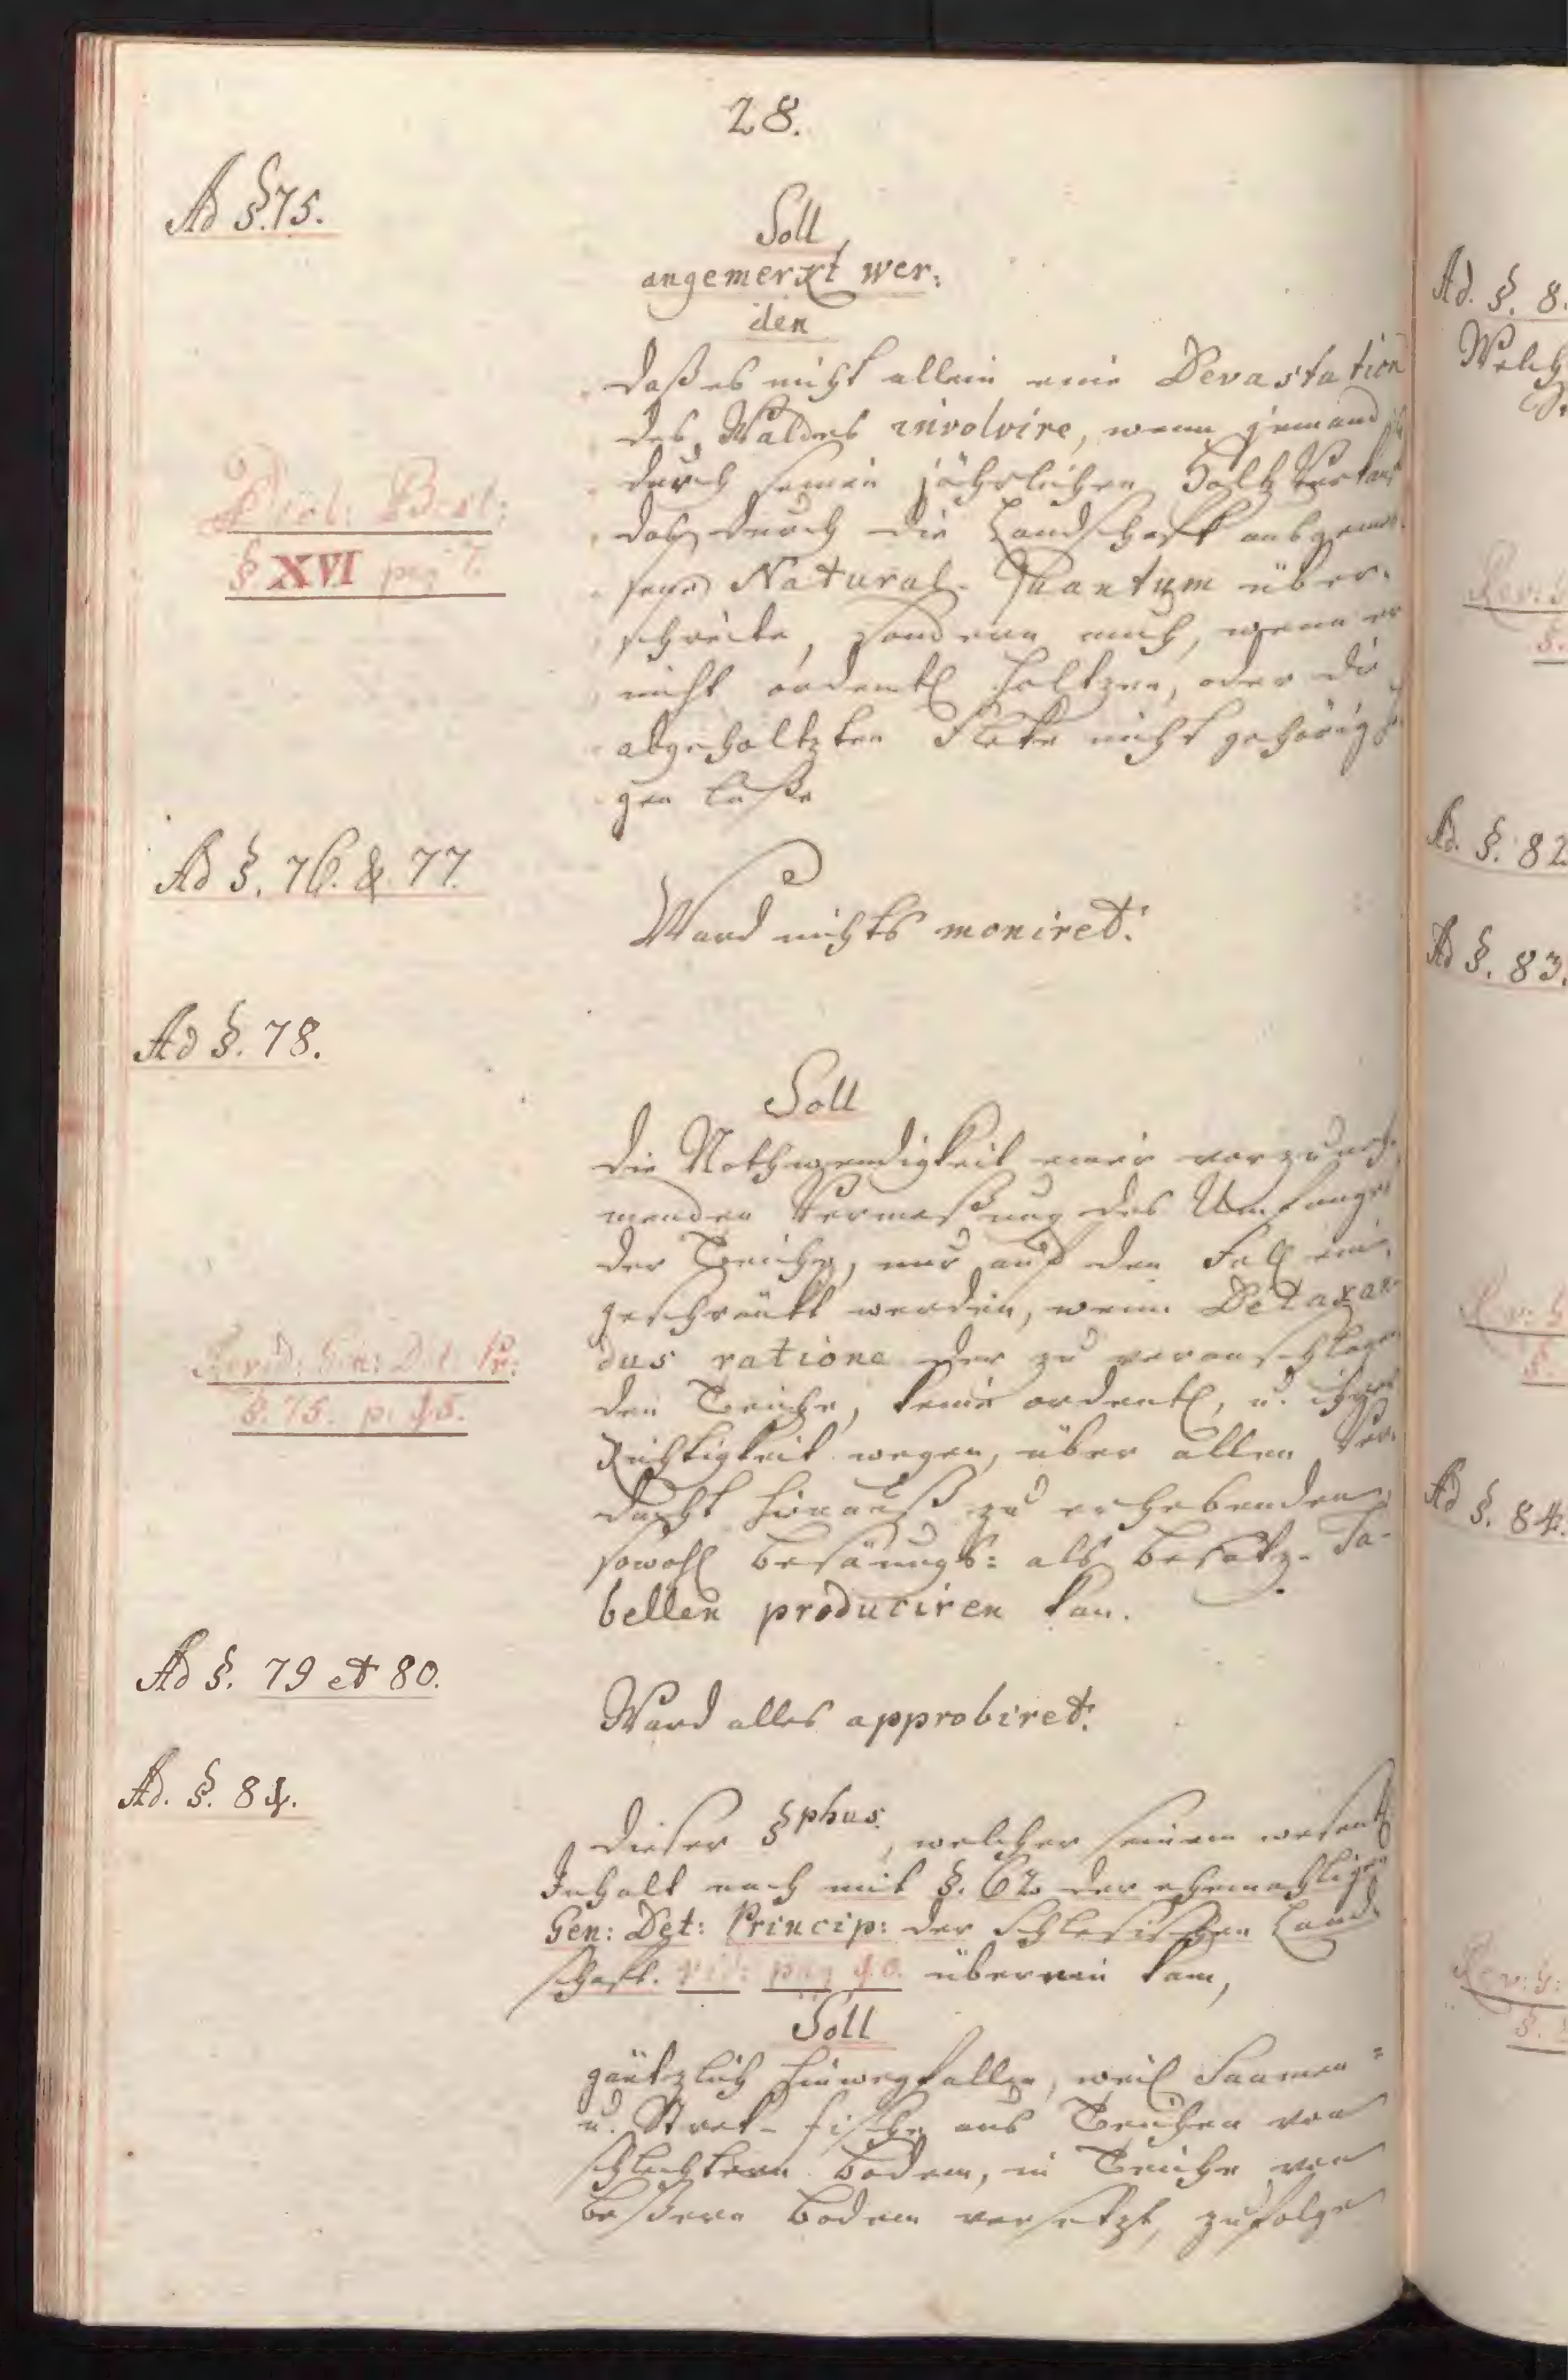 28.
Ad §. 75.
Soll
angemerkt wer:
den
daß es nicht allein eine Devastation
des Waldes involvire, wenn jemand
durch seinen jährlichen Holtz Verkauf
das durch die Landschaft ausgemes-
sene Natural-Quantum über-
schreite, sondern auch, wenn er
nicht ordentl. holtzen, oder die
abgeholtzten Fleke nicht gehörig
gen laße
§ XVI pag 7.
Ad §. 76. & 77.
Ward nichts moniret.
Ad §. 78.
Soll
die Nothwendigkeit einer vorzuneh-
menden Vermeßung des Umfanges
der Teiche, nur auf den Fall ein-
geschränkt werden, wenn Detaxan-
dus ratione der zu veranschlagen-
den Teiche, keine ordentl., u. ihrer
Richtigkeit wegen, über allen Ver-
dacht hinauß zu erhebenden,
sowohl Besäungs: als Besatz-Ta-
bellen produciren kan.
Revid: Gen: Det: Pr:
§. 75. p. 45.
Ad §. 79 et 80.
Ward alles approbiret.
Ad. §. 81.
Dieser §phus, welcher seinem wesentl.
Inhalt nach mit §. 62 der ehemahligen
Gen: Det: Princip: der Schlesischen Land-
schaft. vid: pag 40. überein kam,
Soll
gäntzlich hinwegfallen, weil Saamen=
u. Strek-fische aus Teichen von
schlechterm Boden, in Teiche von
beßerm Boden versetzt, zufolge
Ad. §. 8
Ad. §. 82
Ad §. 83.
Rev: G:
§.
Ad §. 84.
Rev: G: